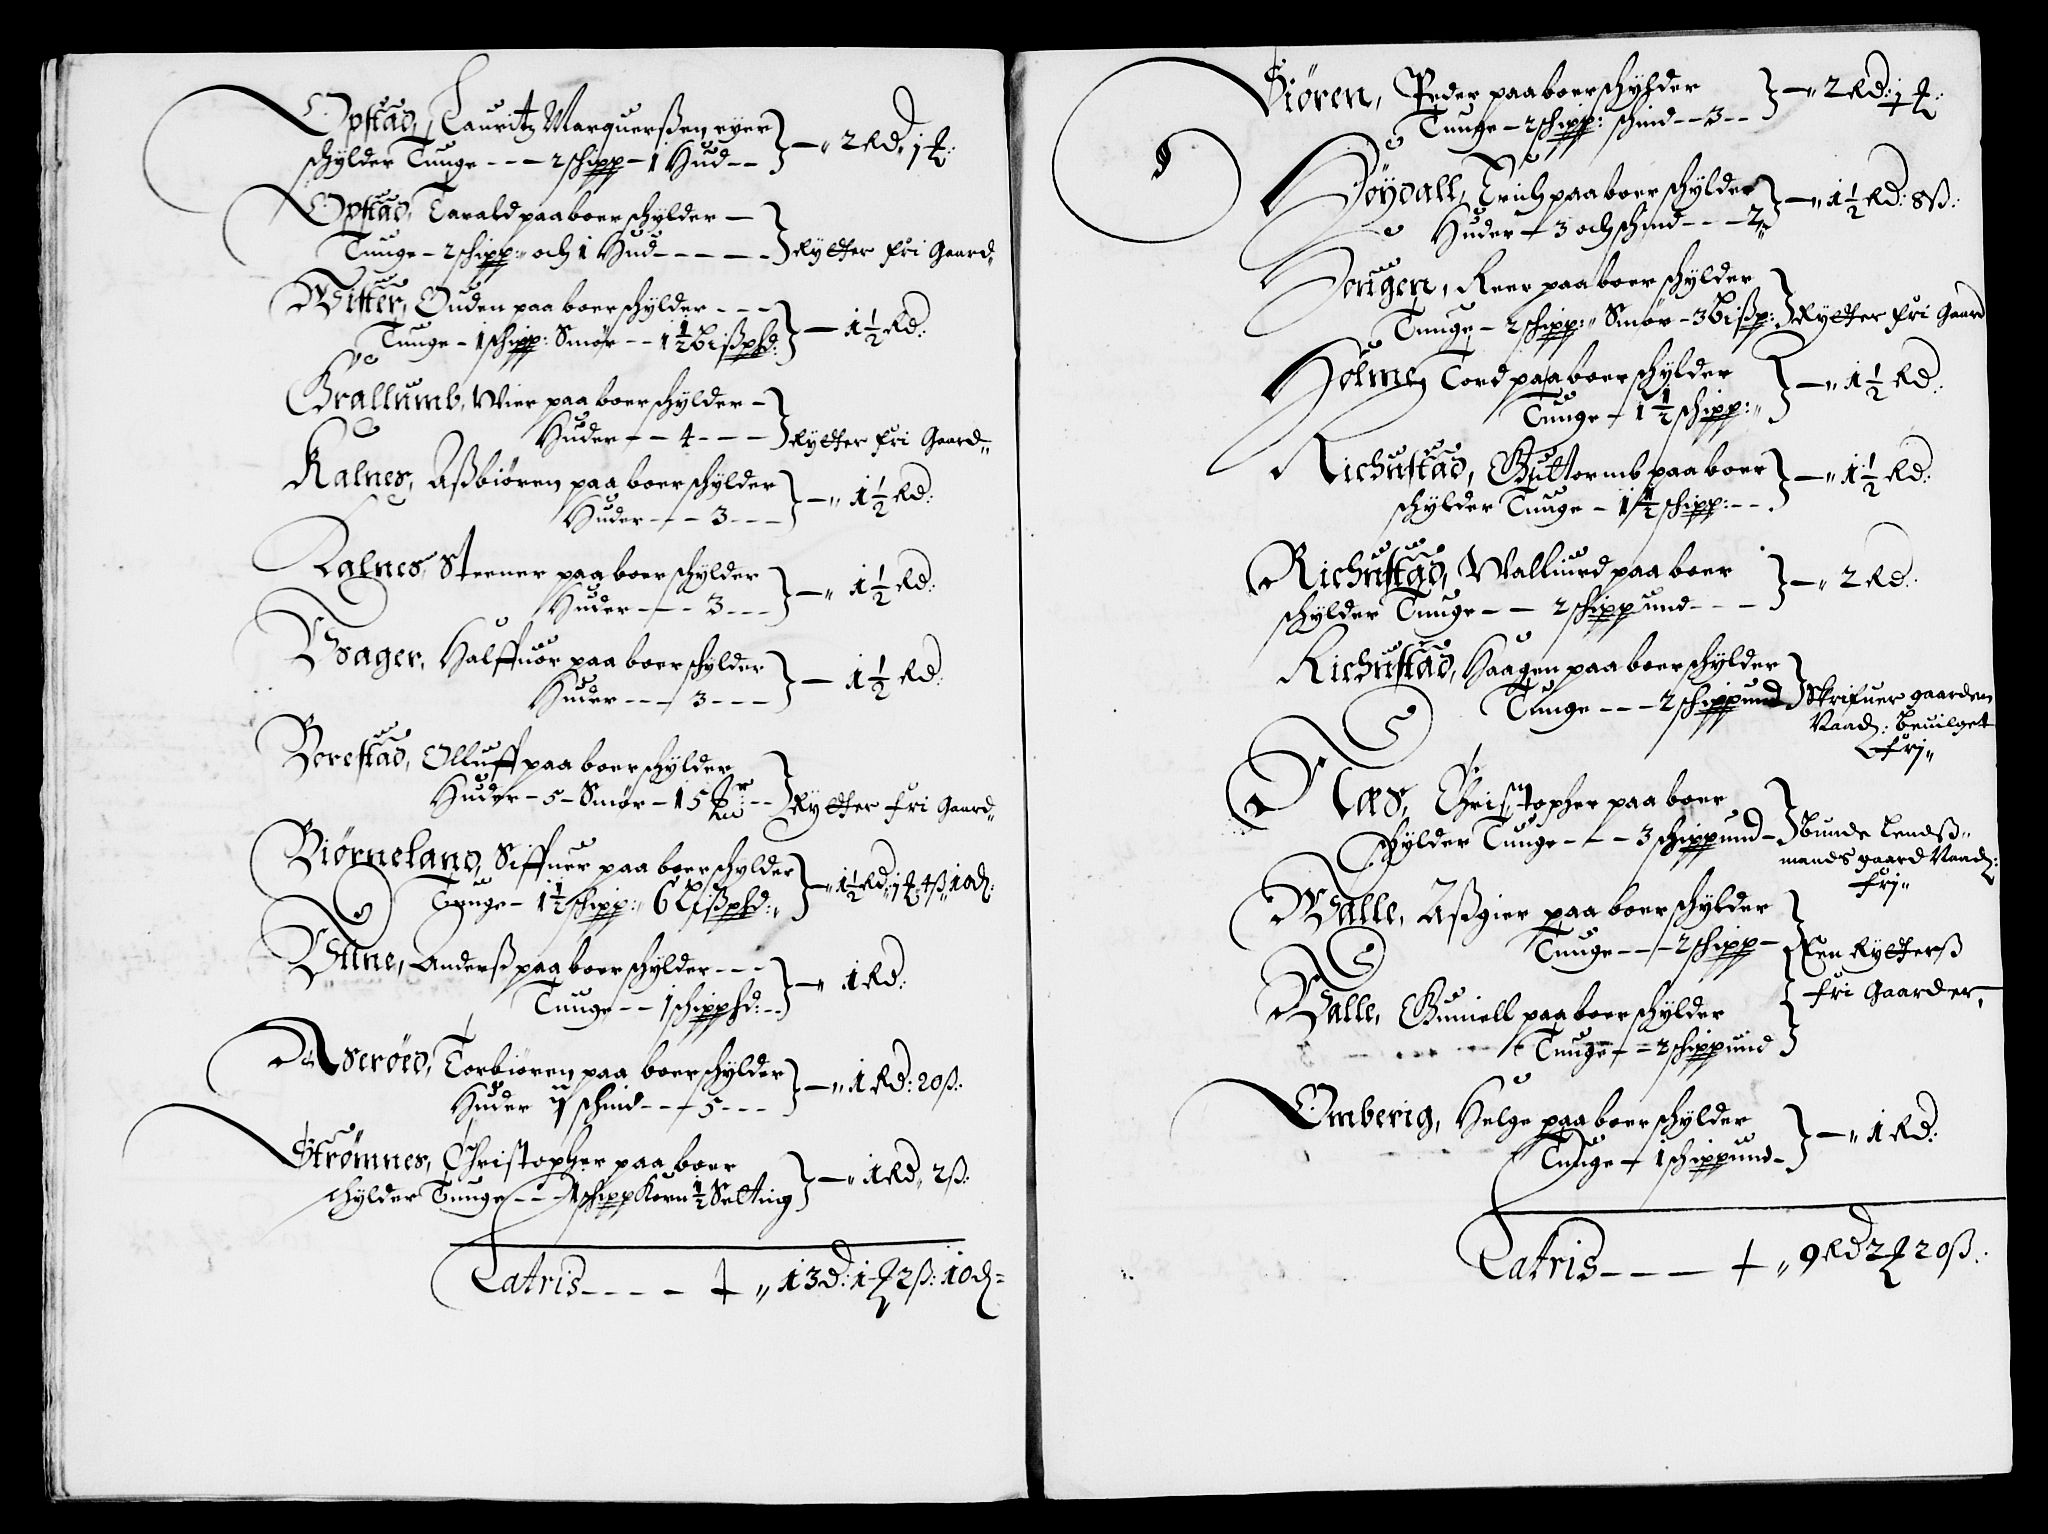 Opstad, Lauritz Marquerßen eyer
schylder Tunge - - - 2 schipp - 1 Hud - - } - „ 2 Rd. 1 ƶ:
Opstad, Tarald paaboer schylder -
Tunge - 2 schipp:„ och 1 Hud - - - - - } Rytter fri Gaard„
Witter, Ouden paa boer schylder - - -
Tunge - 1 schipp: Smör - - 1 1/2 bißphd: } - 1 1/2 Rd:
Grallumb, Wier paa boer schylder -
Huder - - 4 - - - } Rytter fri Gaard„
Kalnes, Aßbiören paa boer schylder
Huder - - - 3 - - - } - „ 1 1/2 Rd:
Kalnes, Steener paa boer schylder
Huder - - - 3 - - - } - „ 1 1/2 Rd:
Bager, Halffuor paa boer schylder
Huder - - - 3 - - - } - 1 1/2 Rd:
Borestad, Olluff paa boer schylder
Huder - 5 - Smör - 15 - - } Rytter fri Gaard„
Biørneland, Siffuer paa boer schylder
Tunge - 1 1/2 schipp:„ 6 Lißphd:„ } - „ 1 1/2 Rd: 1 ƶ 4 ß„ 10 d:
Tune, Anderß paa boer schylder - - -
Tunge - - 1 schipphd: - - } - „ 1 Rd:
Aseröed, Torbiören paa boer schylder
Huder 1 schind - - - 5 - - - } - „ 1 Rd: 20 ß:
Strömnes, Christopher paa boer
schylder Tunge - - - 1 schipp Korn 1/2 Setting } - „ 1 Rd„ 2 ß:
Latris - - - - „ 13 d: 1 ƶ 2 ß: 10 d
9
Siören, Peder paa boer schylder
Tunge - 2 schipp: schind - - 3 - - } - „ 2 Rd: 1 ƶ:
Höydall, Erich paa boer schylder
Huder - 3 och schind - - - 2„ } - „ 1 1/2 Rd: 8 ß:
Hougen, Reer paa boer schylder
Tunge - 2 schipp:„ Smör - 3 bißp: } Rytter fri Gaard
Holme, Tord paa boer schylder
Tunge - 1 1/2 schipp:„ } - „ 1 1/2 Rd:
Richustad, Guttormb paa boer
schylder Tunge - 1 1/2 schipp: - - } - „ 1 1/2 Rd:
Richustad, Walliurd paa boer
schylder Tunge - - 2 schippund - - - } - „ 2 Rd:
Richustad, Haagen paa boer schylder
Tunge - - - 2 schippund } Skrifuer gaarden
Naad: beuilget
fri„
Næs, Christopher paa boer
schylder Tunge - - - 3 schippund - } bunde Lendß„
mands gaard Naad:
fri„
Walle, Aßgier paa boer schylder
Tunge - - - 2 schipp - } Een Rytterß
Walle, Guniell paa boer schylder } fri Gaarder,
Tunge - - 2 schippund
Omberig, Helge paa boer schylder
Tunge - 1 schippund - } - „ 1 Rd:
Latris - - - - „ 9 Rd 2 ƶ 20 ß: